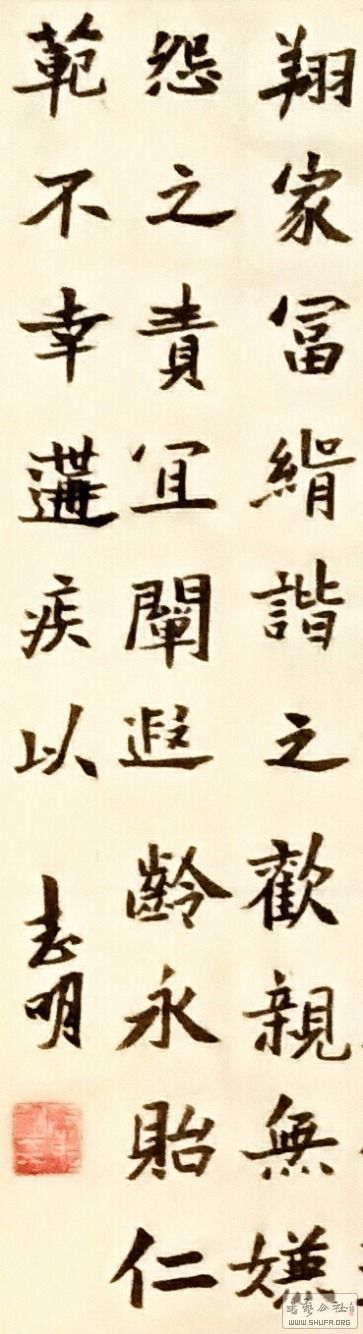 翔家冨緝諧之歡親無嫌
怨之責宜闡遐齡永貽仁
範不幸遘疾以
志明
WWW.SHUFA.ORG